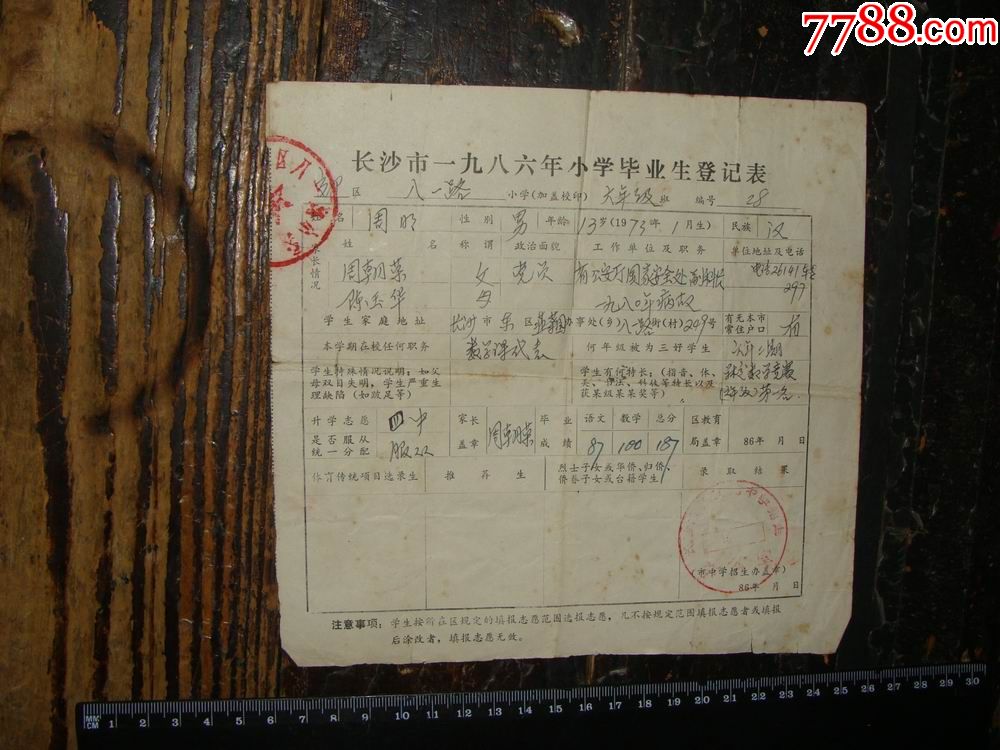 7788.com
长沙市一九八六年小学毕业生登记表
区 八一路 小学(加盖校印) 六年级 班 编号 28
名 周明 性别 男 年龄 13岁(1973年1月生) 民族 汉
长情况 姓名 称谓 政治面貌 工作单位及职务 单位地址及电话
周朝荣 父 党员 省公安厅国家安全处副科长 电话26141转
297
陈玉华 母 一九八〇年病故
学生家庭地址 长沙市东区 办事处(乡)八一路街(村)249号 有无本市常住户口 有
本学期在校任何职务 数学课代表 何年级被为三好学生
学生特殊情况说明:如父母双目失明,学生严重生理缺陷(如跛足等)
学生有何特长:(指音、体、美、书法、科技等特长以及获某级某某奖等) 第一名
升学志愿 四中 家长盖章 周朝荣 毕业成绩 语文 数学 总分 区教育局盖章
87 100 187 86年 月 日
是否服从统一分配 服从
体育传统项目选录生 推荐生 烈士子女或华侨、归侨、侨眷子女或台籍学生 录取结果
(市中学招生办盖章)
86年 月 日
注意事项:学生按所在区规定的填报志愿范围选报志愿,凡不按规定范围填报志愿者或填报
后涂改者,填报志愿无效。
MM
CM 1 2 3 4 5 6 7 8 9 10 11 12 13 14 15 16 17 18 19 20 21 22 23 24 25 26 27 28 29 30